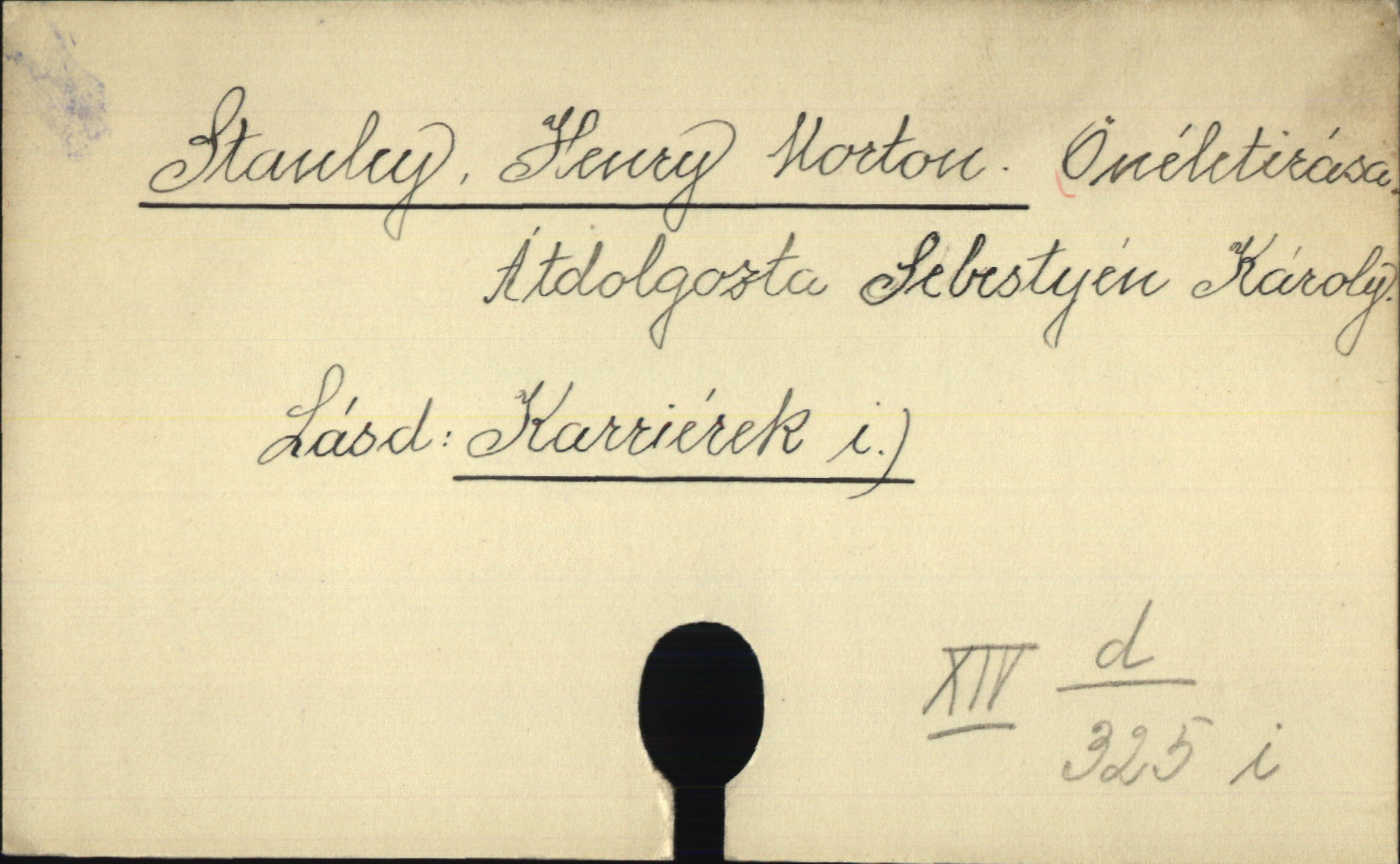 Stanley, Henry Morton. Önéletirása
Átdolgozta Sebestyén Károly.
Lásd: Karriérek i.)
XIV d
325 i